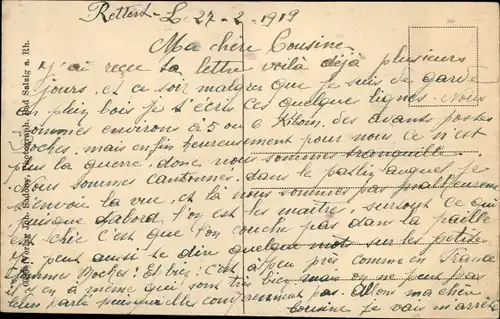 Rettert L. 27-2-1919
Ma chère Cousine
J'ai reçu ta lettre voilà déjà plusieurs
jours, et ce soir malgrer que je suis de garde
en plein bois je t'écris ces quelques lignes. Nous
sommes environs à 5 ou 6 Kilom, des avants postes
boches, mais enfin heureusement pour nous ce n'est
plus la guerre, donc nous sommes tranquille.
Nous sommes cantonnés, dans le patelin auquel je
t'envoie la vue, et là nous sommes pas malheureux
puisque d'abord l'on est les maitres, surtout ce qui
est chic c'est que l'on couche pas dans la paille
Je peut aussi te dire quelque mot sur les petites
femmes Boches! Et bien! C'est à peu près comme en France
il y en a même qui sont très bien, mais on ne peut pas
leurs parlé puisqu'elle comprennent pas. Allons ma chère
cousine je vais m'arrêté
Verlag Joh. Photograph, Bad Salzig a. Rh.